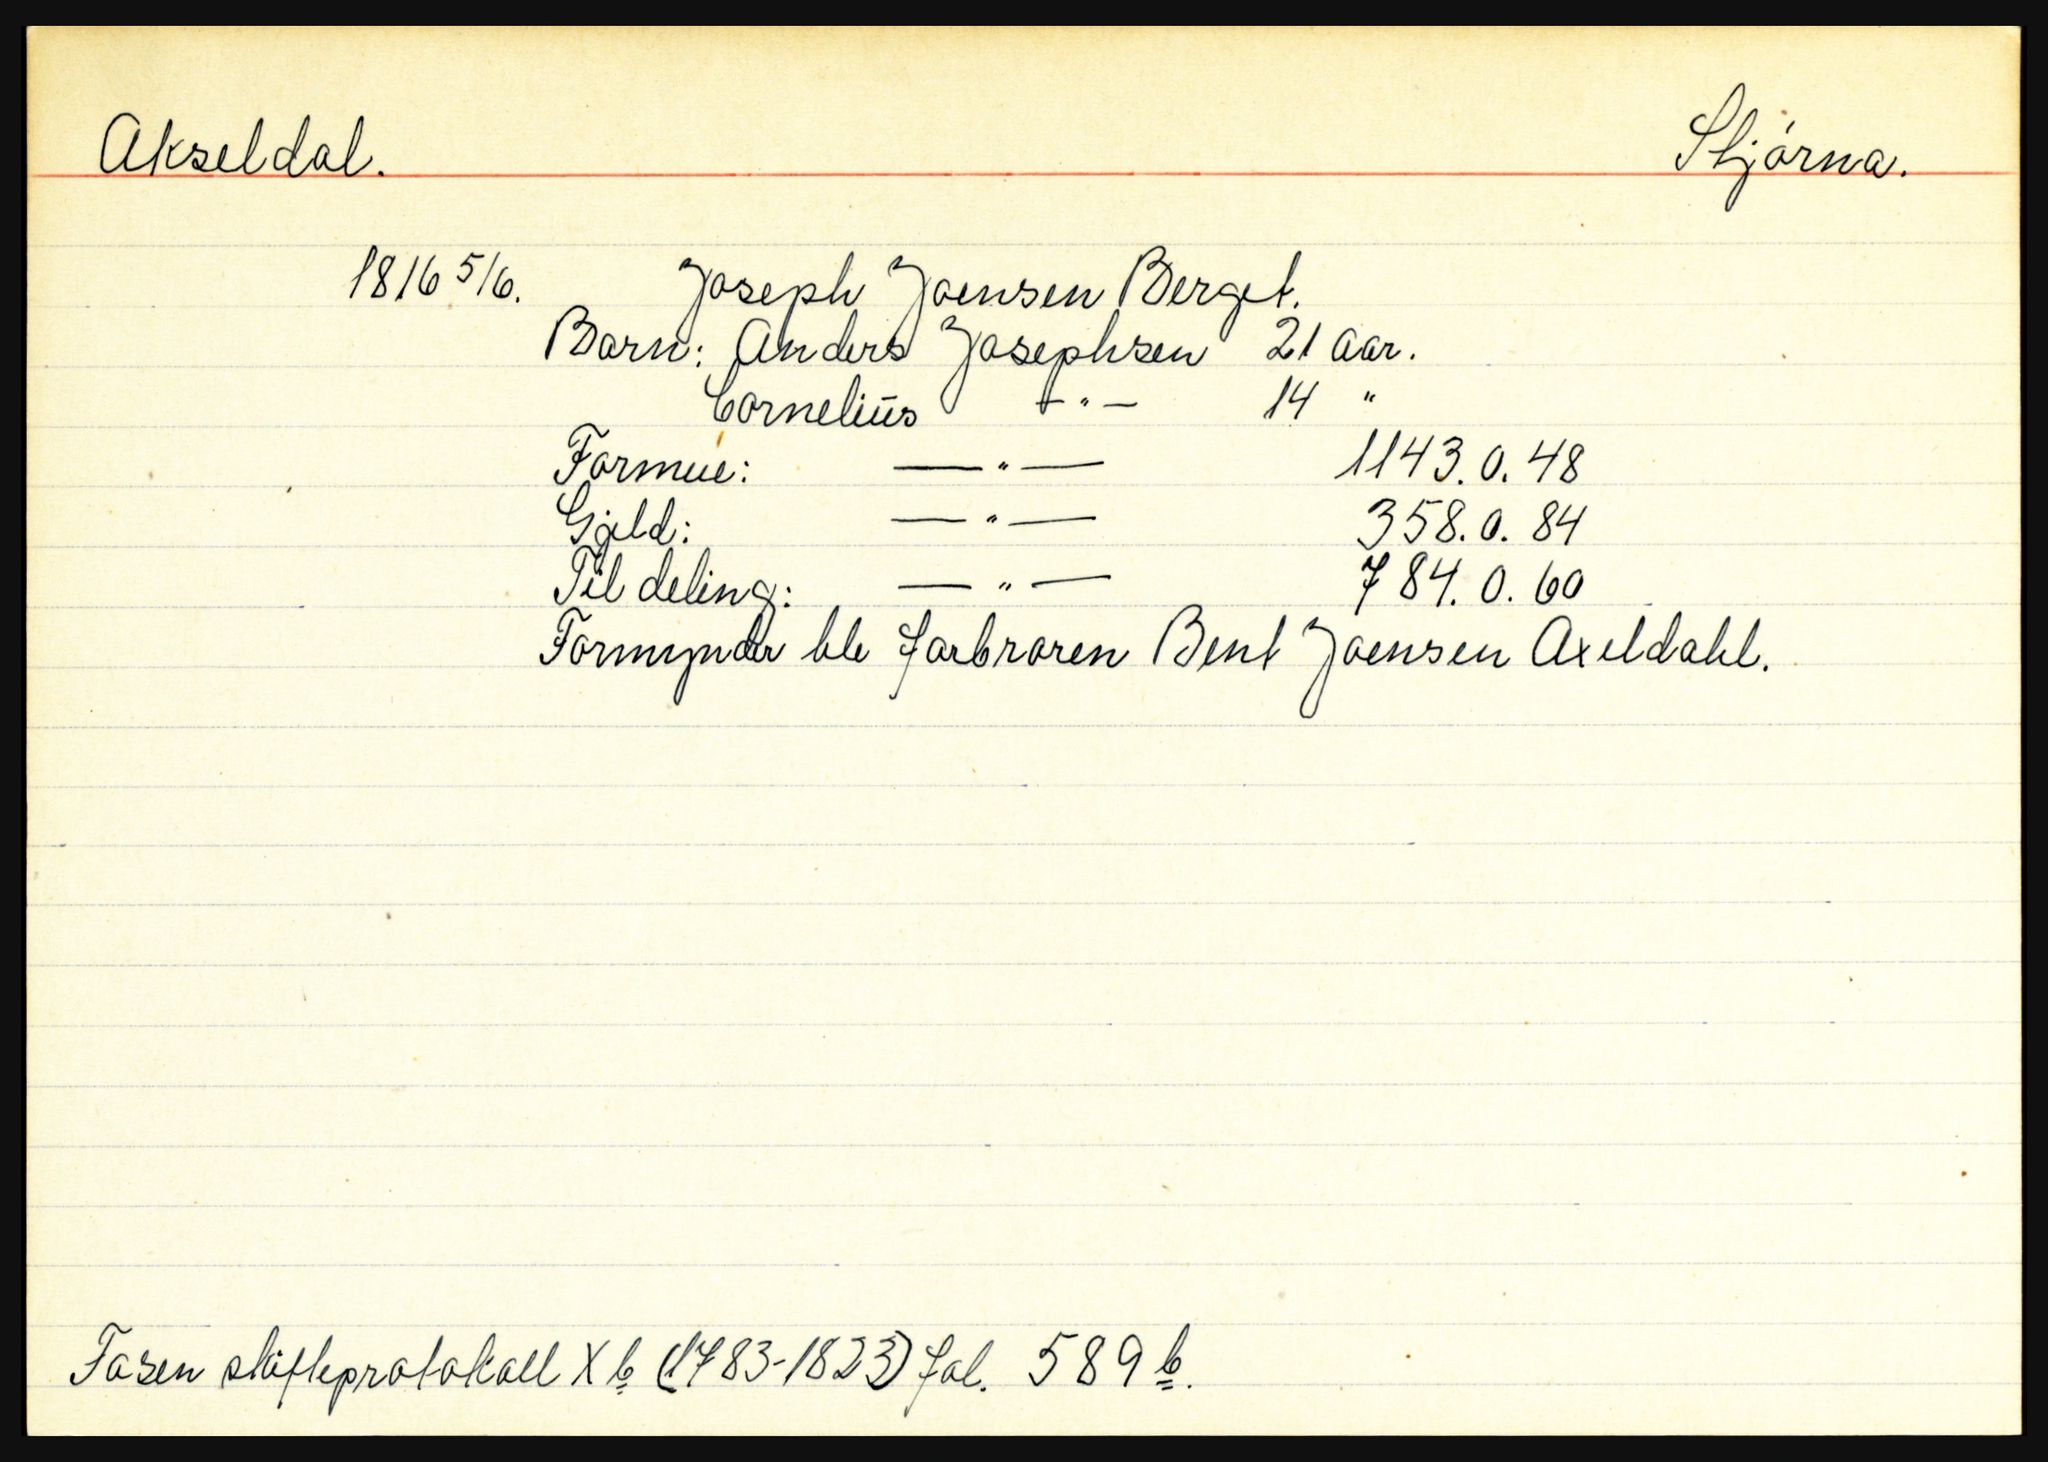 Akseldal. Stjørna.
1816 5/6. Joseph Joensen Berget.
Barn: Anders Josephsen 21 aar.
Cornelius — " — 14 "
Formue: — " — 1143.0.48
Gjeld: — " — 358.0.84
Til deling: — " — 784.0.60
Formynder ble farbroren Bent Joensen Axeldahl.
Fosen skifteprotokoll X b (1783-1823) fol. 589 b.